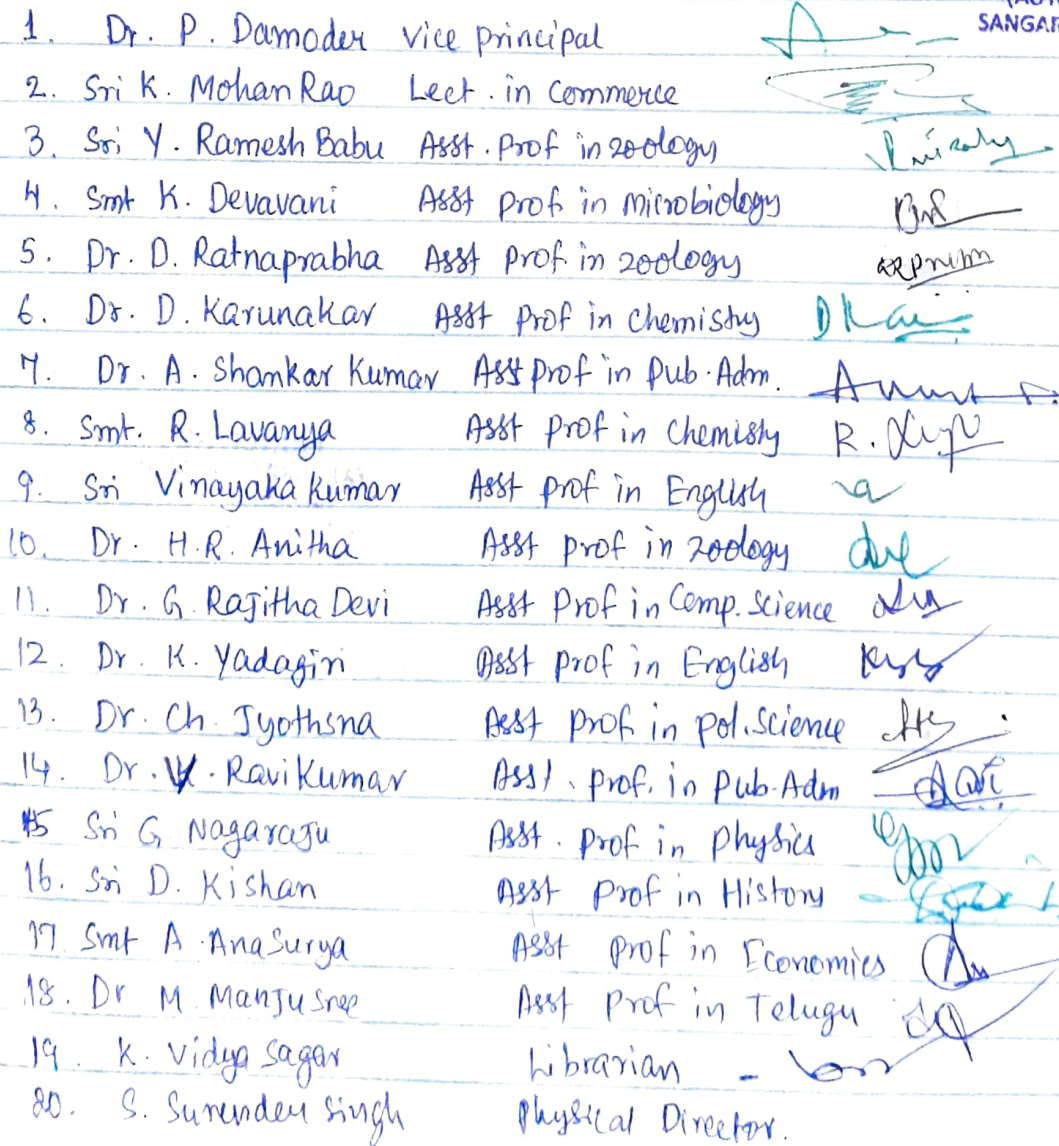 SANGAR
1. Dr. P. Damoder Vice principal
2. Sri K. Mohan Rao Lect. in Commerce
3. Sri Y. Ramesh Babu Asst. Prof in zoology
4. Smt K. Devavani Asst prof in microbiology
5. Dr. D. Ratnaprabha Asst prof in zoology
6. Dr. D. Karunakar Asst prof in chemistry
7. Dr. A. Shankar Kumar Asst prof in Pub. Adm.
8. Smt. R. Lavanya Asst prof in chemisty R.
9. Sri Vinayaka Kumar Asst prof in English
10. Dr. H.R. Anitha Asst prof in zoology
11. Dr. G. Rajitha Devi Asst Prof in Comp. Science
12. Dr. K. Yadagiri Asst prof in English
13. Dr. Ch. Jyothsna Asst prof in pol. Science
14. Dr. V. Ravi Kumar Asst. prof. in Pub. Adm
15 Sri G Nagaraju Asst. prof in physics
16. Sri D. Kishan Asst prof in History
17 Smt A. Anasurya Asst prof in Economics
18. Dr M. Manjusree Asst prof in Telugu
19. K. Vidya Sagar Librarian
20. S. Surender Singh Physical Director.